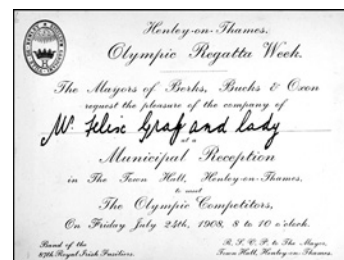 Henley-on-Thames.
Olympic Regatta Week.
The Mayors of Berks, Bucks & Oxon
request the pleasure of the company of
Mr. Felix Graf and lady
at a
Municipal Reception
in The Town Hall, Henley-on-Thames,
to meet
The Olympic Competitors,
On Friday July 24th, 1908, 8 to 10 o'clock.
Band of the
87th Royal Irish Fusiliers.
R. S. V. P. to The Mayor,
Town Hall, Henley-on-Thames.